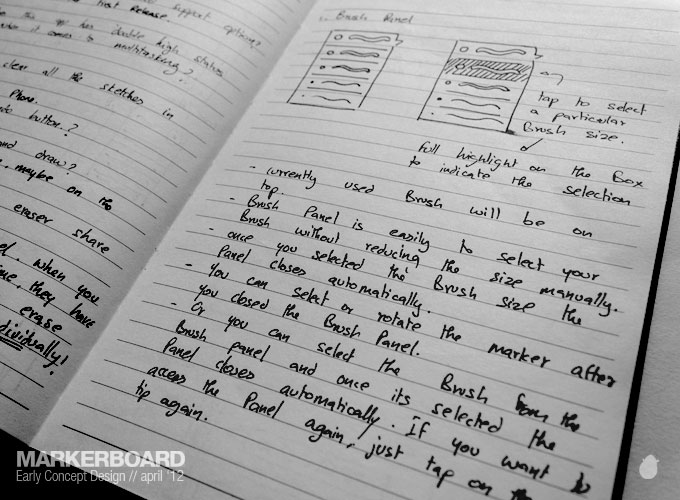 support option?
host Release.
has double high status
when it comes to multitasking?
clear all the sketches in
Phone.
button.?
and draw?
maybe on the
eraser share
when you
they have
erase
individually!
Brush Panel
tap to select
a particular
Brush size.
full highlight on the Box
to indicate the selection
- currently used Brush will be on
top.
- Brush Panel is easily to select your
Brush without reducing the size manually.
- once you selected the Brush size the
Panel closes automatically.
- You can select or rotate the marker after
you closed the Brush Panel.
- Or you can select the Brush from the
Brush panel and once its selected the
Panel closes automatically. If you want to
access the Panel again, just tap on the
tip again.
MARKERBOARD
Early Concept Design // april '12